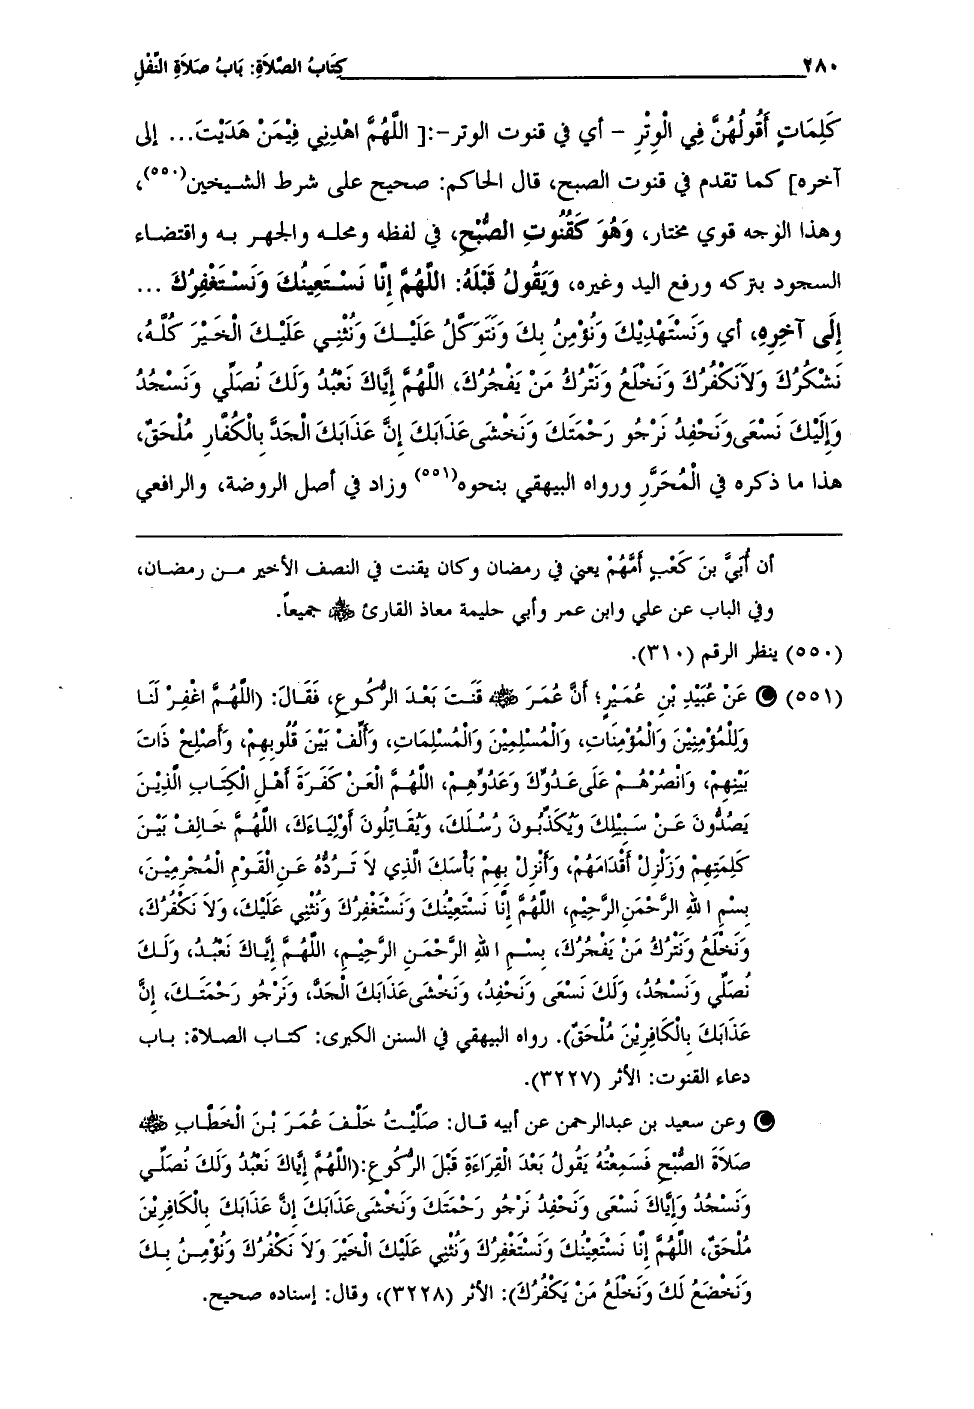 ٢٨٠ كِتَابُ الصَّلاَةِ: بَابُ صَلاَةِ النَّفْلِ
كَلِمَاتٍ أَقُولُهُنَّ فِي الْوِتْرِ - أي في قنوت الوتر-:[ اللَّهُمَّ اهْدِنِي فِيْمَنْ هَدَيْتَ... إلى
آخره] كما تقدم في قنوت الصبح، قال الحاكم: صحيح على شرط الشيخين(٥٥٠)،
وهذا الوجه قوي مختار، وَهُوَ كَقُنُوتِ الصُّبْحِ، في لفظه ومحله والجهر به واقتضاء
السجود بتركه ورفع اليد وغيره، وَيَقُولُ قَبْلَهُ: اللَّهُمَّ إِنَّا نَسْتَعِينُكَ وَنَسْتَغْفِرُكَ ...
إِلَى آخِرِهِ، أي وَنَسْتَهْدِيْكَ وَنُؤْمِنُ بِكَ وَنَتَوَكَّلُ عَلَيْكَ وَنُثْنِي عَلَيْكَ الْخَيْرَ كُلَّهُ،
نَشْكُرُكَ وَلاَنَكْفُرُكَ وَنَخْلَعُ وَنَتْرُكُ مَنْ يَفْجُرُكَ، اللَّهُمَّ إِيَّاكَ نَعْبُدُ وَلَكَ نُصَلِّي وَنَسْجُدُ
وَإِلَيْكَ نَسْعَى وَنَحْفِدُ نَرْجُو رَحْمَتَكَ وَنَخْشَى عَذَابَكَ إِنَّ عَذَابَكَ الْجَدَّ بِالْكُفَّارِ مُلْحَقٌ،
هذا ما ذكره في الْمُحَرَّرِ ورواه البيهقي بنحوه(٥٥١) وزاد في أصل الروضة، والرافعي
أن أُبَيَّ بنَ كَعْبٍ أَمَّهُمْ يعني في رمضان وكان يقنت في النصف الأخير من رمضان،
وفي الباب عن علي وابن عمر وأبي حليمة معاذ القارئ ﷺ جميعاً.
(٥٥٠) ينظر الرقم (٣١٠).
(٥٥١) عَنْ عُبَيْدِ بْنِ عُمَيْرٍ؛ أَنَّ عُمَرَ ﷺ قَنَتَ بَعْدَ الرُّكُوعِ، فَقَالَ: (اللَّهُمَّ اغْفِرْ لَنَا
وَلِلْمُؤْمِنِيْنَ وَالْمُؤْمِنَاتِ، وَالْمُسْلِمِيْنَ وَالْمُسْلِمَاتِ، وَأَلِّفْ بَيْنَ قُلُوبِهِمْ، وَأَصْلِحْ ذَاتَ
بَيْنِهِمْ، وَانْصُرْهُمْ عَلَى عَدُوِّكَ وَعَدُوِّهِمْ، اللَّهُمَّ الْعَنْ كَفَرَةَ أَهْلِ الْكِتَابِ الَّذِيْنَ
يَصُدُّونَ عَنْ سَبِيْلِكَ وَيُكَذِّبُونَ رُسُلَكَ، وَيُقَاتِلُونَ أَوْلِيَاءَكَ، اللَّهُمَّ خَالِفْ بَيْنَ
كَلِمَتِهِمْ وَزَلْزِلْ أَقْدَامَهُمْ، وَأَنْزِلْ بِهِمْ بَأْسَكَ الَّذِي لاَ تَرُدُّهُ عَنِ الْقَوْمِ الْمُجْرِمِيْنَ،
بِسْمِ اللهِ الرَّحْمَنِ الرَّحِيْمِ، اللَّهُمَّ إِنَّا نَسْتَعِيْنُكَ وَنَسْتَغْفِرُكَ وَنُثْنِي عَلَيْكَ، وَلاَ نَكْفُرُكَ،
وَنَخْلَعُ وَنَتْرُكُ مَنْ يَفْجُرُكَ، بِسْمِ اللهِ الرَّحْمَنِ الرَّحِيْمِ، اللَّهُمَّ إِيَّاكَ نَعْبُدُ، وَلَكَ
نُصَلِّي وَنَسْجُدُ، وَلَكَ نَسْعَى وَنَحْفِدُ، وَنَخْشَى عَذَابَكَ الْجَدَّ، وَنَرْجُو رَحْمَتَكَ، إِنَّ
عَذَابَكَ بِالْكَافِرِيْنَ مُلْحَقٌ). رواه البيهقي في السنن الكبرى: كتاب الصلاة: باب
دعاء القنوت: الأثر (٣٢٢٧).
وعن سعيد بن عبدالرحمن عن أبيه قال: صَلَّيْتُ خَلْفَ عُمَرَ بْنَ الْخَطَّابِ ﷺ
صَلاَةَ الصُّبْحِ فَسَمِعْتُهُ يَقُولُ بَعْدَ الْقِرَاءَةِ قَبْلَ الرُّكُوعِ:(اللَّهُمَّ إِيَّاكَ نَعْبُدُ وَلَكَ نُصَلِّي
وَنَسْجُدُ وَإِيَّاكَ نَسْعَى وَنَحْفِدُ نَرْجُو رَحْمَتَكَ وَنَخْشَى عَذَابَكَ إِنَّ عَذَابَكَ بِالْكَافِرِيْنَ
مُلْحَقٌ، اللَّهُمَّ إِنَّا نَسْتَعِيْنُكَ وَنَسْتَغْفِرُكَ وَنُثْنِي عَلَيْكَ الْخَيْرَ وَلاَ نَكْفُرُكَ وَنُؤْمِنُ بِكَ
وَنَخْضَعُ لَكَ وَنَخْلَعُ مَنْ يَكْفُرُكَ): الأثر (٣٢٢٨)، وقال: إسناده صحيح.